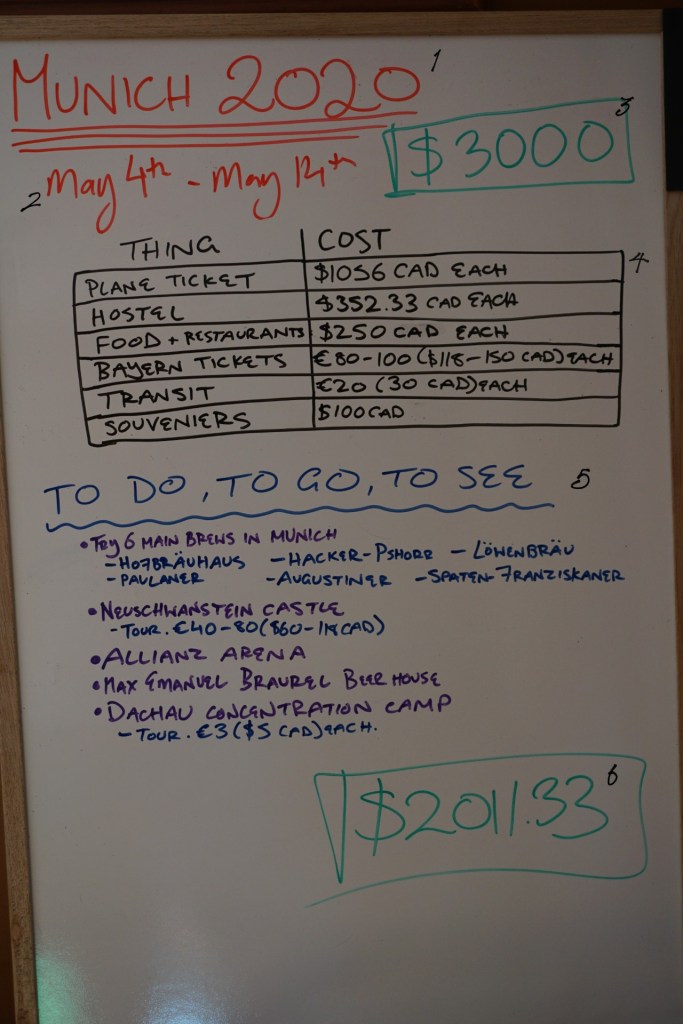 MUNICH 2020 1
$3000 3
2 May 4th - May 14th
THING COST
4
PLANE TICKET $1056 CAD EACH
HOSTEL $352.33 CAD EACH
FOOD + RESTAURANTS $250 CAD EACH
BAYERN TICKETS €80-100 ($118-150 CAD) EACH
TRANSIT €20 (30 CAD) EACH
SOUVENIERS $100 CAD
TO DO, TO GO, TO SEE 5
• TRY 6 MAIN BREWS IN MUNICH
- HOFBRÄUHAUS - HACKER-PSHORR - LÖWENBRÄU
- PAULANER - AUGUSTINER - SPATEN-FRANZISKANER
• NEUSCHWANSTEIN CASTLE
- TOUR. €40-80 ($60-118 CAD)
• ALLIANZ ARENA
• MAX EMANUEL BRAUREL BEER HOUSE
• DACHAU CONCENTRATION CAMP
- TOUR. €3 ($5 CAD) EACH.
$2011.33 6